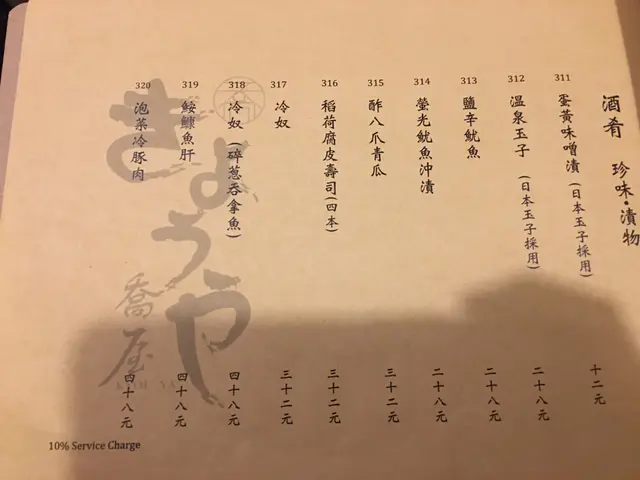 酒肴 珍味・漬物
311
蛋黃味噌漬(日本玉子採用)
十二元
312
温泉玉子(日本玉子採用)
二十八元
313
鹽辛魷魚
二十八元
314
螢光魷魚沖漬
二十八元
315
酢八爪青瓜
三十二元
316
稻荷腐皮壽司(四本)
三十二元
317
冷奴
三十二元
318
冷奴(碎葱吞拿魚)
四十八元
319
鮟鱇魚肝
四十八元
320
泡菜冷豚肉
四十八元
きょうや
喬屋
10% Service Charge